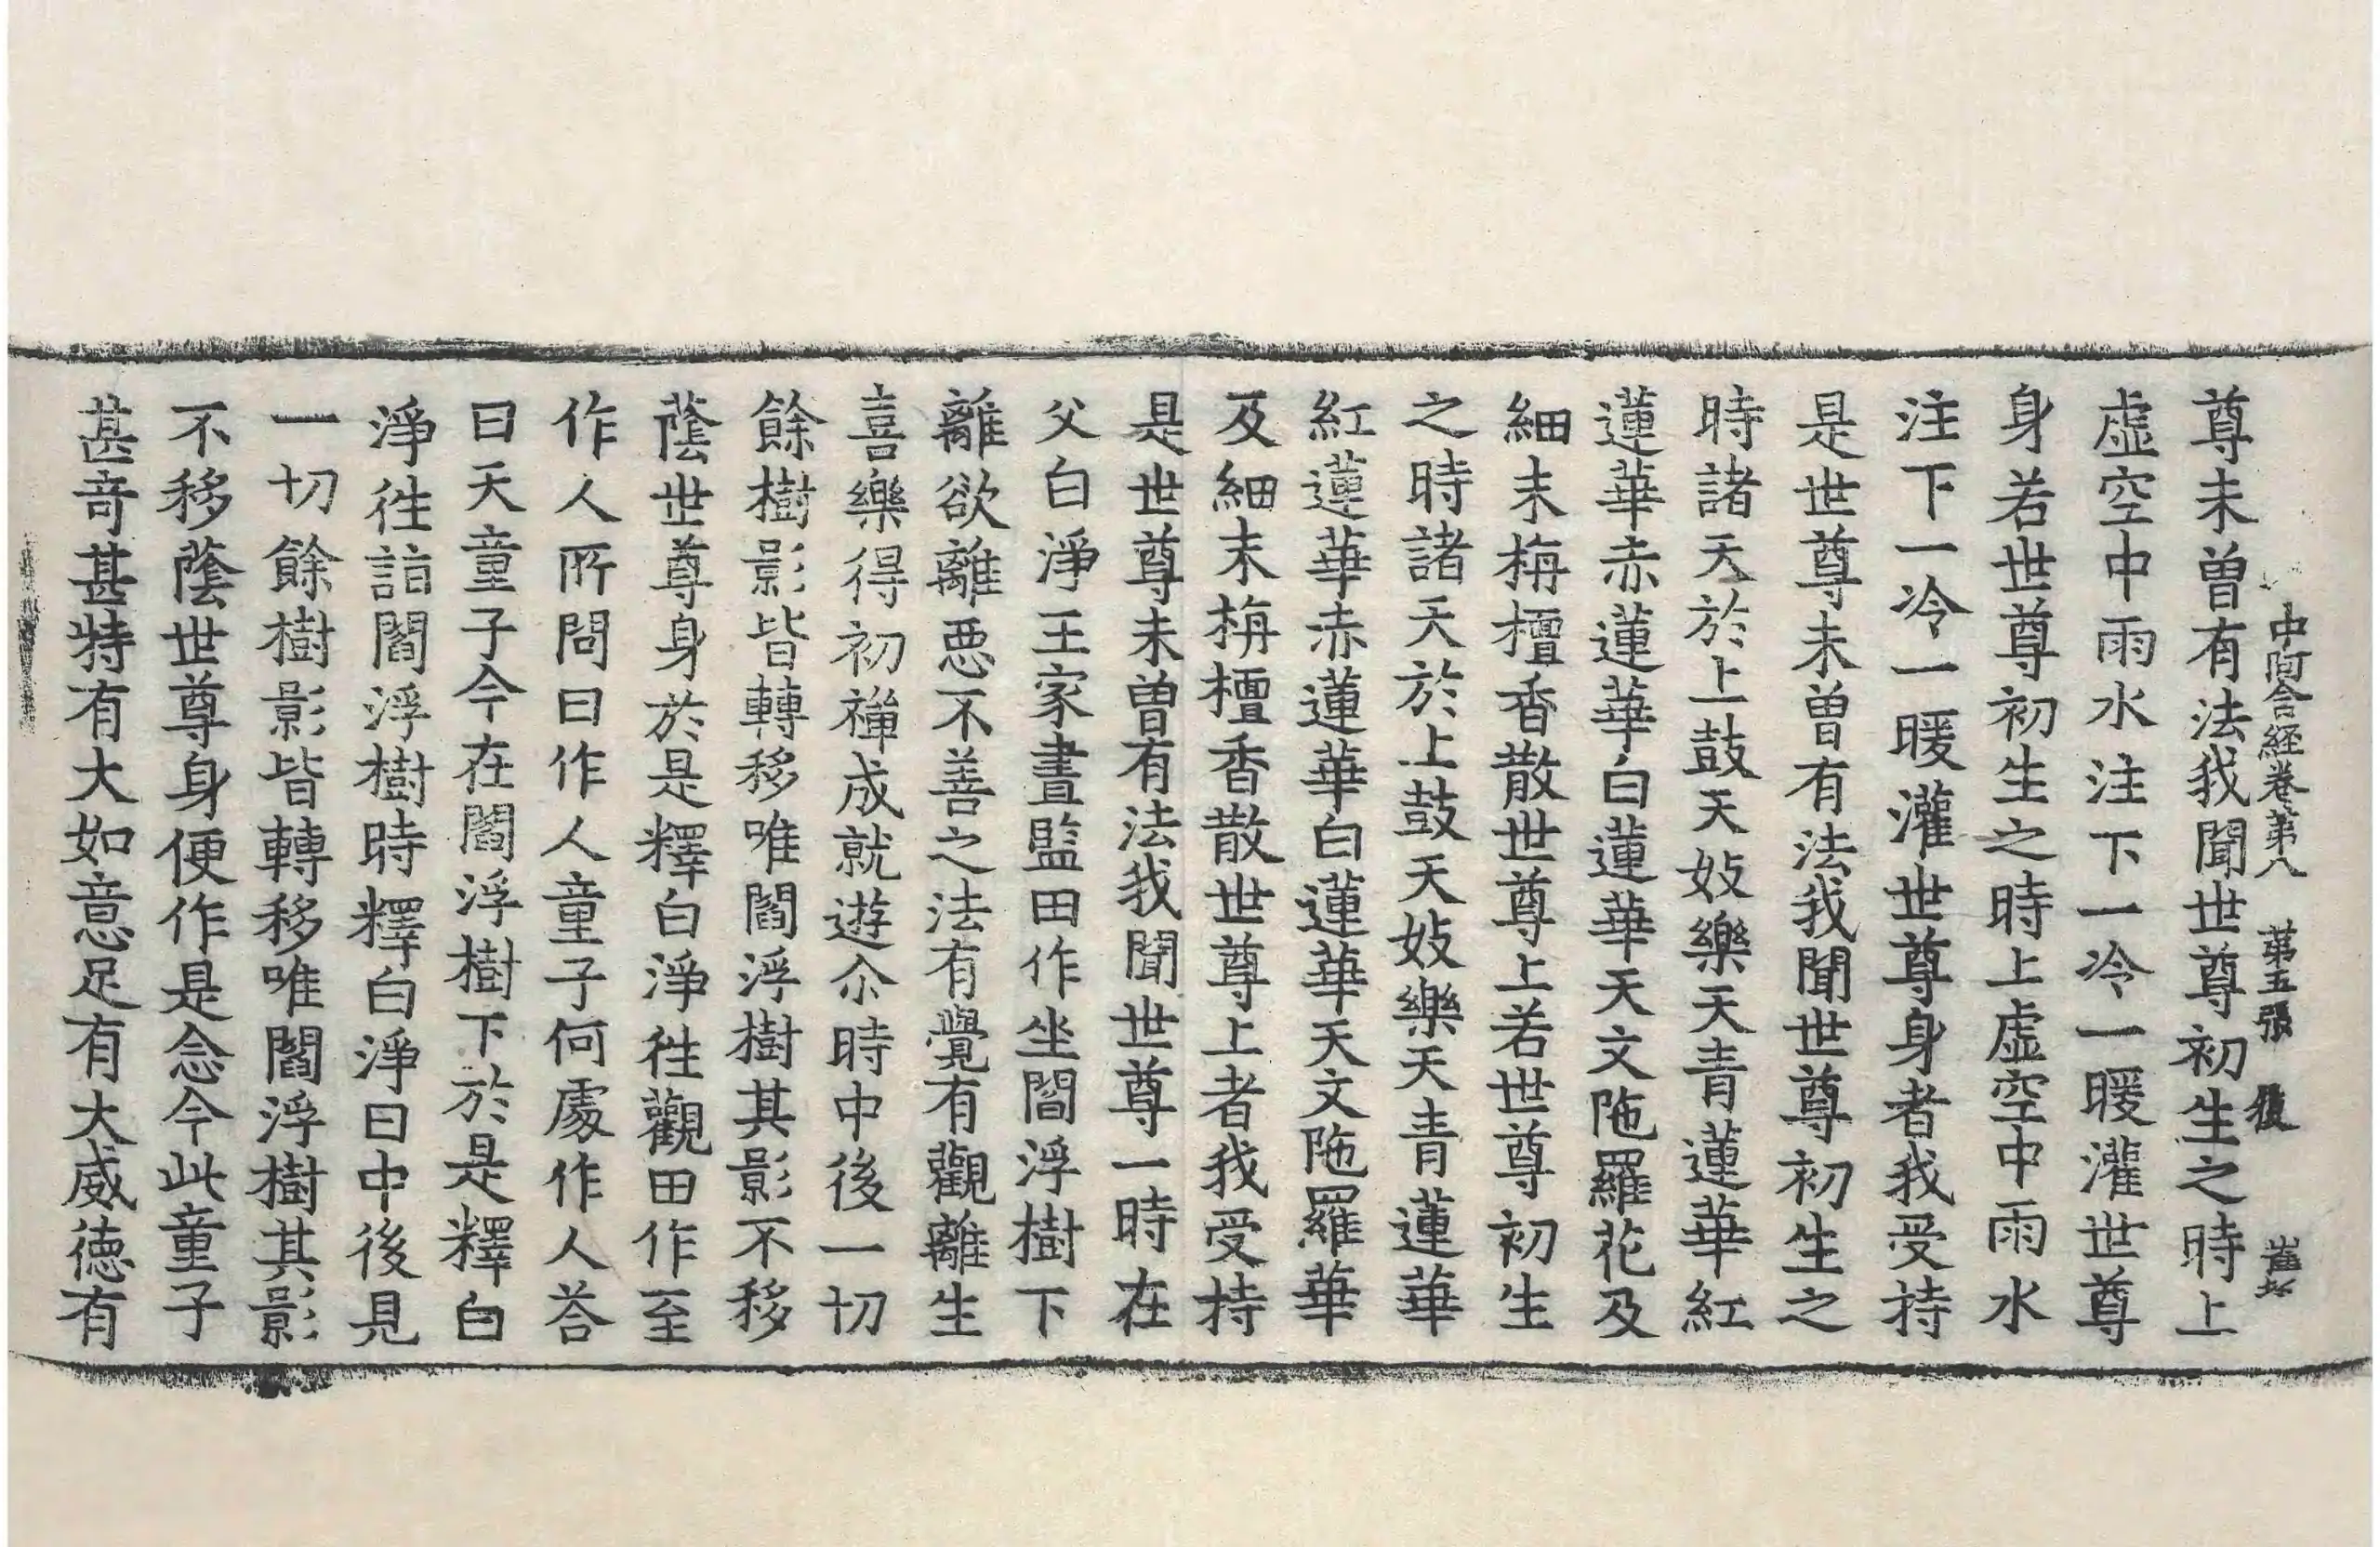 中阿含経卷苐八 苐五張 㑹
尊未曾有法我聞世尊初生之時上
虛空中雨水注下一冷一暖灌世尊
身若世尊初生之時上虛空中雨水
注下一冷一暖灌世尊身者我受持
是世尊未曾有法我聞世尊初生之
時諸天於上鼓天妓樂天青蓮華紅
蓮華赤蓮華白蓮華天文陁羅花及
細末栴檀香散世尊上若世尊初生
之時諸天於上鼓天妓樂天青蓮華
紅蓮華赤蓮華白蓮華天文陁羅華
及細末栴檀香散世尊上者我受持
是世尊未曾有法我聞世尊一時在
父白淨王家晝監田作坐閻浮樹下
離欲離惡不善之法有覺有觀離生
喜樂得初禪成就遊尒時中後一切
餘樹影皆轉移唯閻浮樹其影不移
蔭世尊身於是釋白淨往觀田作至
作人所問曰作人童子何處作人荅
曰天童子今在閻浮樹下於是釋白
淨往詣閻浮樹時釋白淨日中後見
一切餘樹影皆轉移唯閻浮樹其影
不移蔭世尊身便作是念今此童子
甚奇甚特有大如意足有大威德有